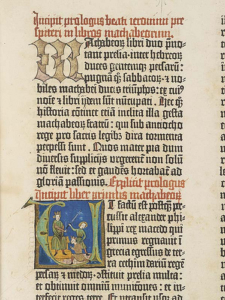 Incipit prologus beati ieronimi pre
sbiteri in libros machabeorum.
Machabeorũ libri duo p̃no-
tant prelia inter hebreorũ
duces gentemq̃ persarũ:
pugnã q̃ sabbatorũ: et no-
biles machabei ducis triumphos: ex cui9
nomine libri iidem sũt nũcupati. Hec q̃
historia cõtinet etiã inclita illa gesta
machabeorũ fratrũ: qui sub antiocho
rege pro sacris legibus dira tormenta
perpessi sunt. Quos mater pia dum
diversis suppliciis urgerentur nõ solũ
nõ flevit: sed et gaudens hortabat̃ ad
gloriam passionis. Explicit prologus
Incipit liber primus machabeorũ
Et factũ est postq̃ per-
cussit alexander phi-
lippi rex macedo qui
primus regnavit ĩ
grecia egressus de ter-
ra cethim dariũ regẽ
persarũ et medorũ: constituit prelia multa:
et obtinuit omniũ munitiones: et in-
terfecit reges terre. Et pertransiit usq̃ ad